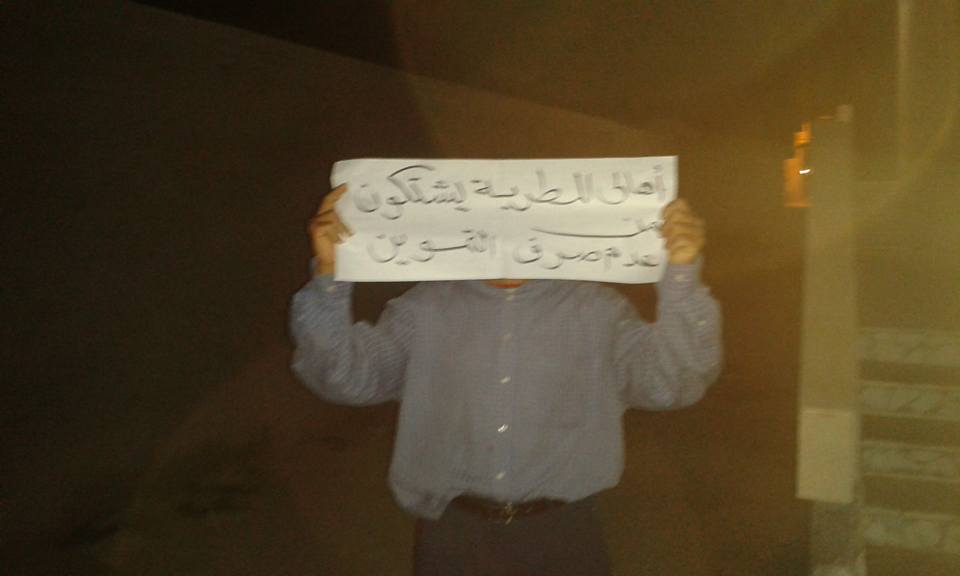 أهالى المطرية يشتكون
من
عدم صرف التموين